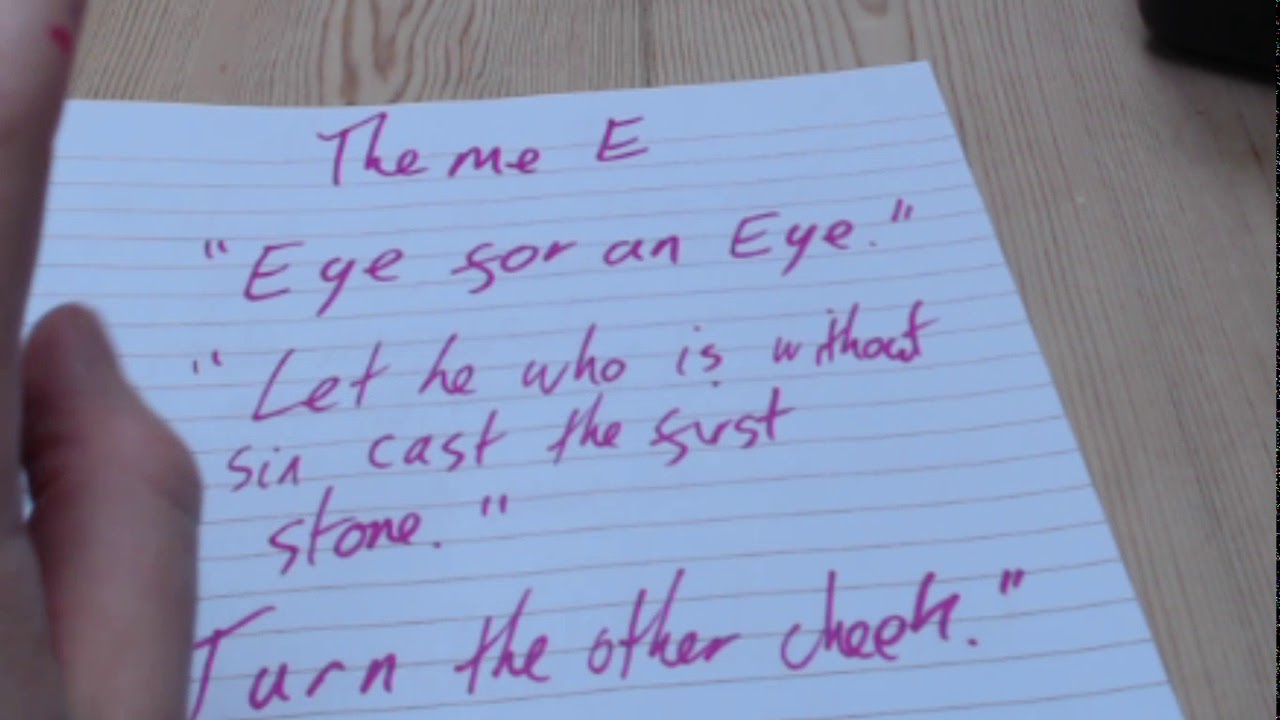 Theme E
"Eye for an Eye."
"Let he who is without
sin cast the first
stone."
Turn the other cheek."